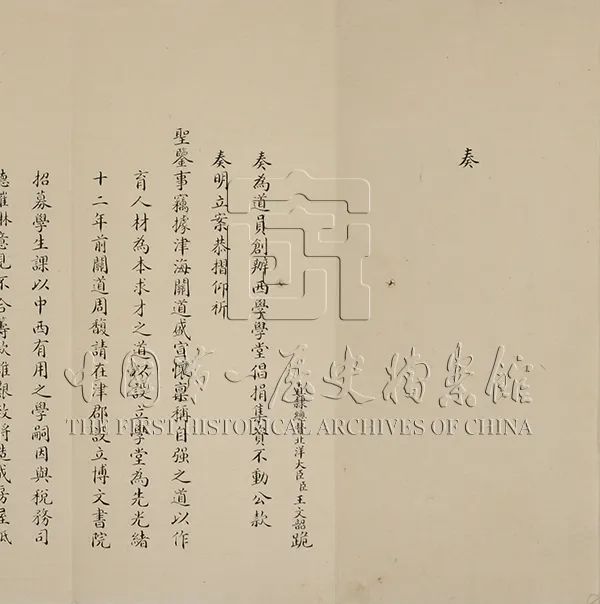 奏
直隸總督北洋大臣臣王文韶跪
奏為道員創辦西學學堂倡捐集資不動公款
奏明立案恭摺仰祈
聖鑒事竊據津海關道盛宣懷稟稱自强之道以作
育人材為本求才之道以設立學堂為先光緒
十二年前關道周馥請在津郡設立博文書院
招募學生課以中西有用之學嗣因與稅務司
德璀琳意見不合籌款維艱致將造成房屋抵
中国第一历史档案馆
THE FIRST HISTORICAL ARCHIVES OF CHINA